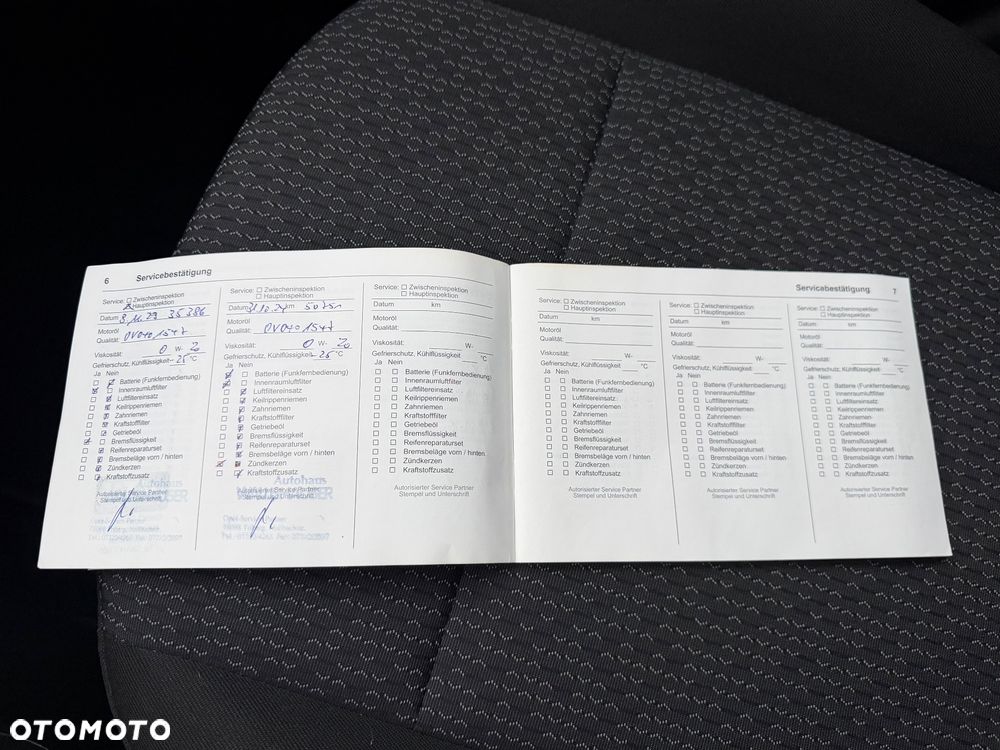 6 Servicebestätigung
Service: ☐ Zwischeninspektion
☒ Hauptinspektion
Datum 35386
Motoröl
Qualität: OV040 1547
Viskosität: 0 W- 20
Gefrierschutz, Kühlflüssigkeit -25 °C
Ja Nein
Batterie (Funkfernbedienung)
Innenraumluftfilter
Luftfiltereinsatz
Keilrippenriemen
Zahnriemen
Kraftstofffilter
Getriebeöl
Bremsflüssigkeit
Reifenreparaturset
Bremsbeläge vorn / hinten
Zündkerzen
Kraftstoffzusatz
Autohaus
Autorisierter Service Partner
Stempel und Unterschrift
Service: ☐ Zwischeninspektion
☐ Hauptinspektion
Datum km
Motoröl
Qualität: OV040 1547
Viskosität: 0 W- 20
Gefrierschutz, Kühlflüssigkeit -25 °C
Ja Nein
Batterie (Funkfernbedienung)
Innenraumluftfilter
Luftfiltereinsatz
Keilrippenriemen
Zahnriemen
Kraftstofffilter
Getriebeöl
Bremsflüssigkeit
Reifenreparaturset
Bremsbeläge vorn / hinten
Zündkerzen
Kraftstoffzusatz
Autohaus
Autorisierter Service Partner
Stempel und Unterschrift
Service: ☐ Zwischeninspektion
☐ Hauptinspektion
Datum km
Motoröl
Qualität:
Viskosität: W-
Gefrierschutz, Kühlflüssigkeit °C
Ja Nein
Batterie (Funkfernbedienung)
Innenraumluftfilter
Luftfiltereinsatz
Keilrippenriemen
Zahnriemen
Kraftstofffilter
Getriebeöl
Bremsflüssigkeit
Reifenreparaturset
Bremsbeläge vorn / hinten
Zündkerzen
Kraftstoffzusatz
Autorisierter Service Partner
Stempel und Unterschrift
Servicebestätigung 7
Service: ☐ Zwischeninspektion
☐ Hauptinspektion
Datum km
Motoröl
Qualität:
Viskosität: W-
Gefrierschutz, Kühlflüssigkeit °C
Ja Nein
Batterie (Funkfernbedienung)
Innenraumluftfilter
Luftfiltereinsatz
Keilrippenriemen
Zahnriemen
Kraftstofffilter
Getriebeöl
Bremsflüssigkeit
Reifenreparaturset
Bremsbeläge vorn / hinten
Zündkerzen
Kraftstoffzusatz
Autorisierter Service Partner
Stempel und Unterschrift
Service: ☐ Zwischeninspektion
☐ Hauptinspektion
Datum km
Motoröl
Qualität:
Viskosität: W-
Gefrierschutz, Kühlflüssigkeit °C
Ja Nein
Batterie (Funkfernbedienung)
Innenraumluftfilter
Luftfiltereinsatz
Keilrippenriemen
Zahnriemen
Kraftstofffilter
Getriebeöl
Bremsflüssigkeit
Reifenreparaturset
Bremsbeläge vorn / hinten
Zündkerzen
Kraftstoffzusatz
Autorisierter Service Partner
Stempel und Unterschrift
Service: ☐ Zwischeninspektion
☐ Hauptinspektion
Datum km
Motoröl
Qualität:
Viskosität: W-
Gefrierschutz, Kühlflüssigkeit °C
Ja Nein
Batterie (Funkfernbedienung)
Innenraumluftfilter
Luftfiltereinsatz
Keilrippenriemen
Zahnriemen
Kraftstofffilter
Getriebeöl
Bremsflüssigkeit
Reifenreparaturset
Bremsbeläge vorn / hinten
Zündkerzen
Kraftstoffzusatz
Autorisierter Service Partner
Stempel und Unterschrift
OTOMOTO